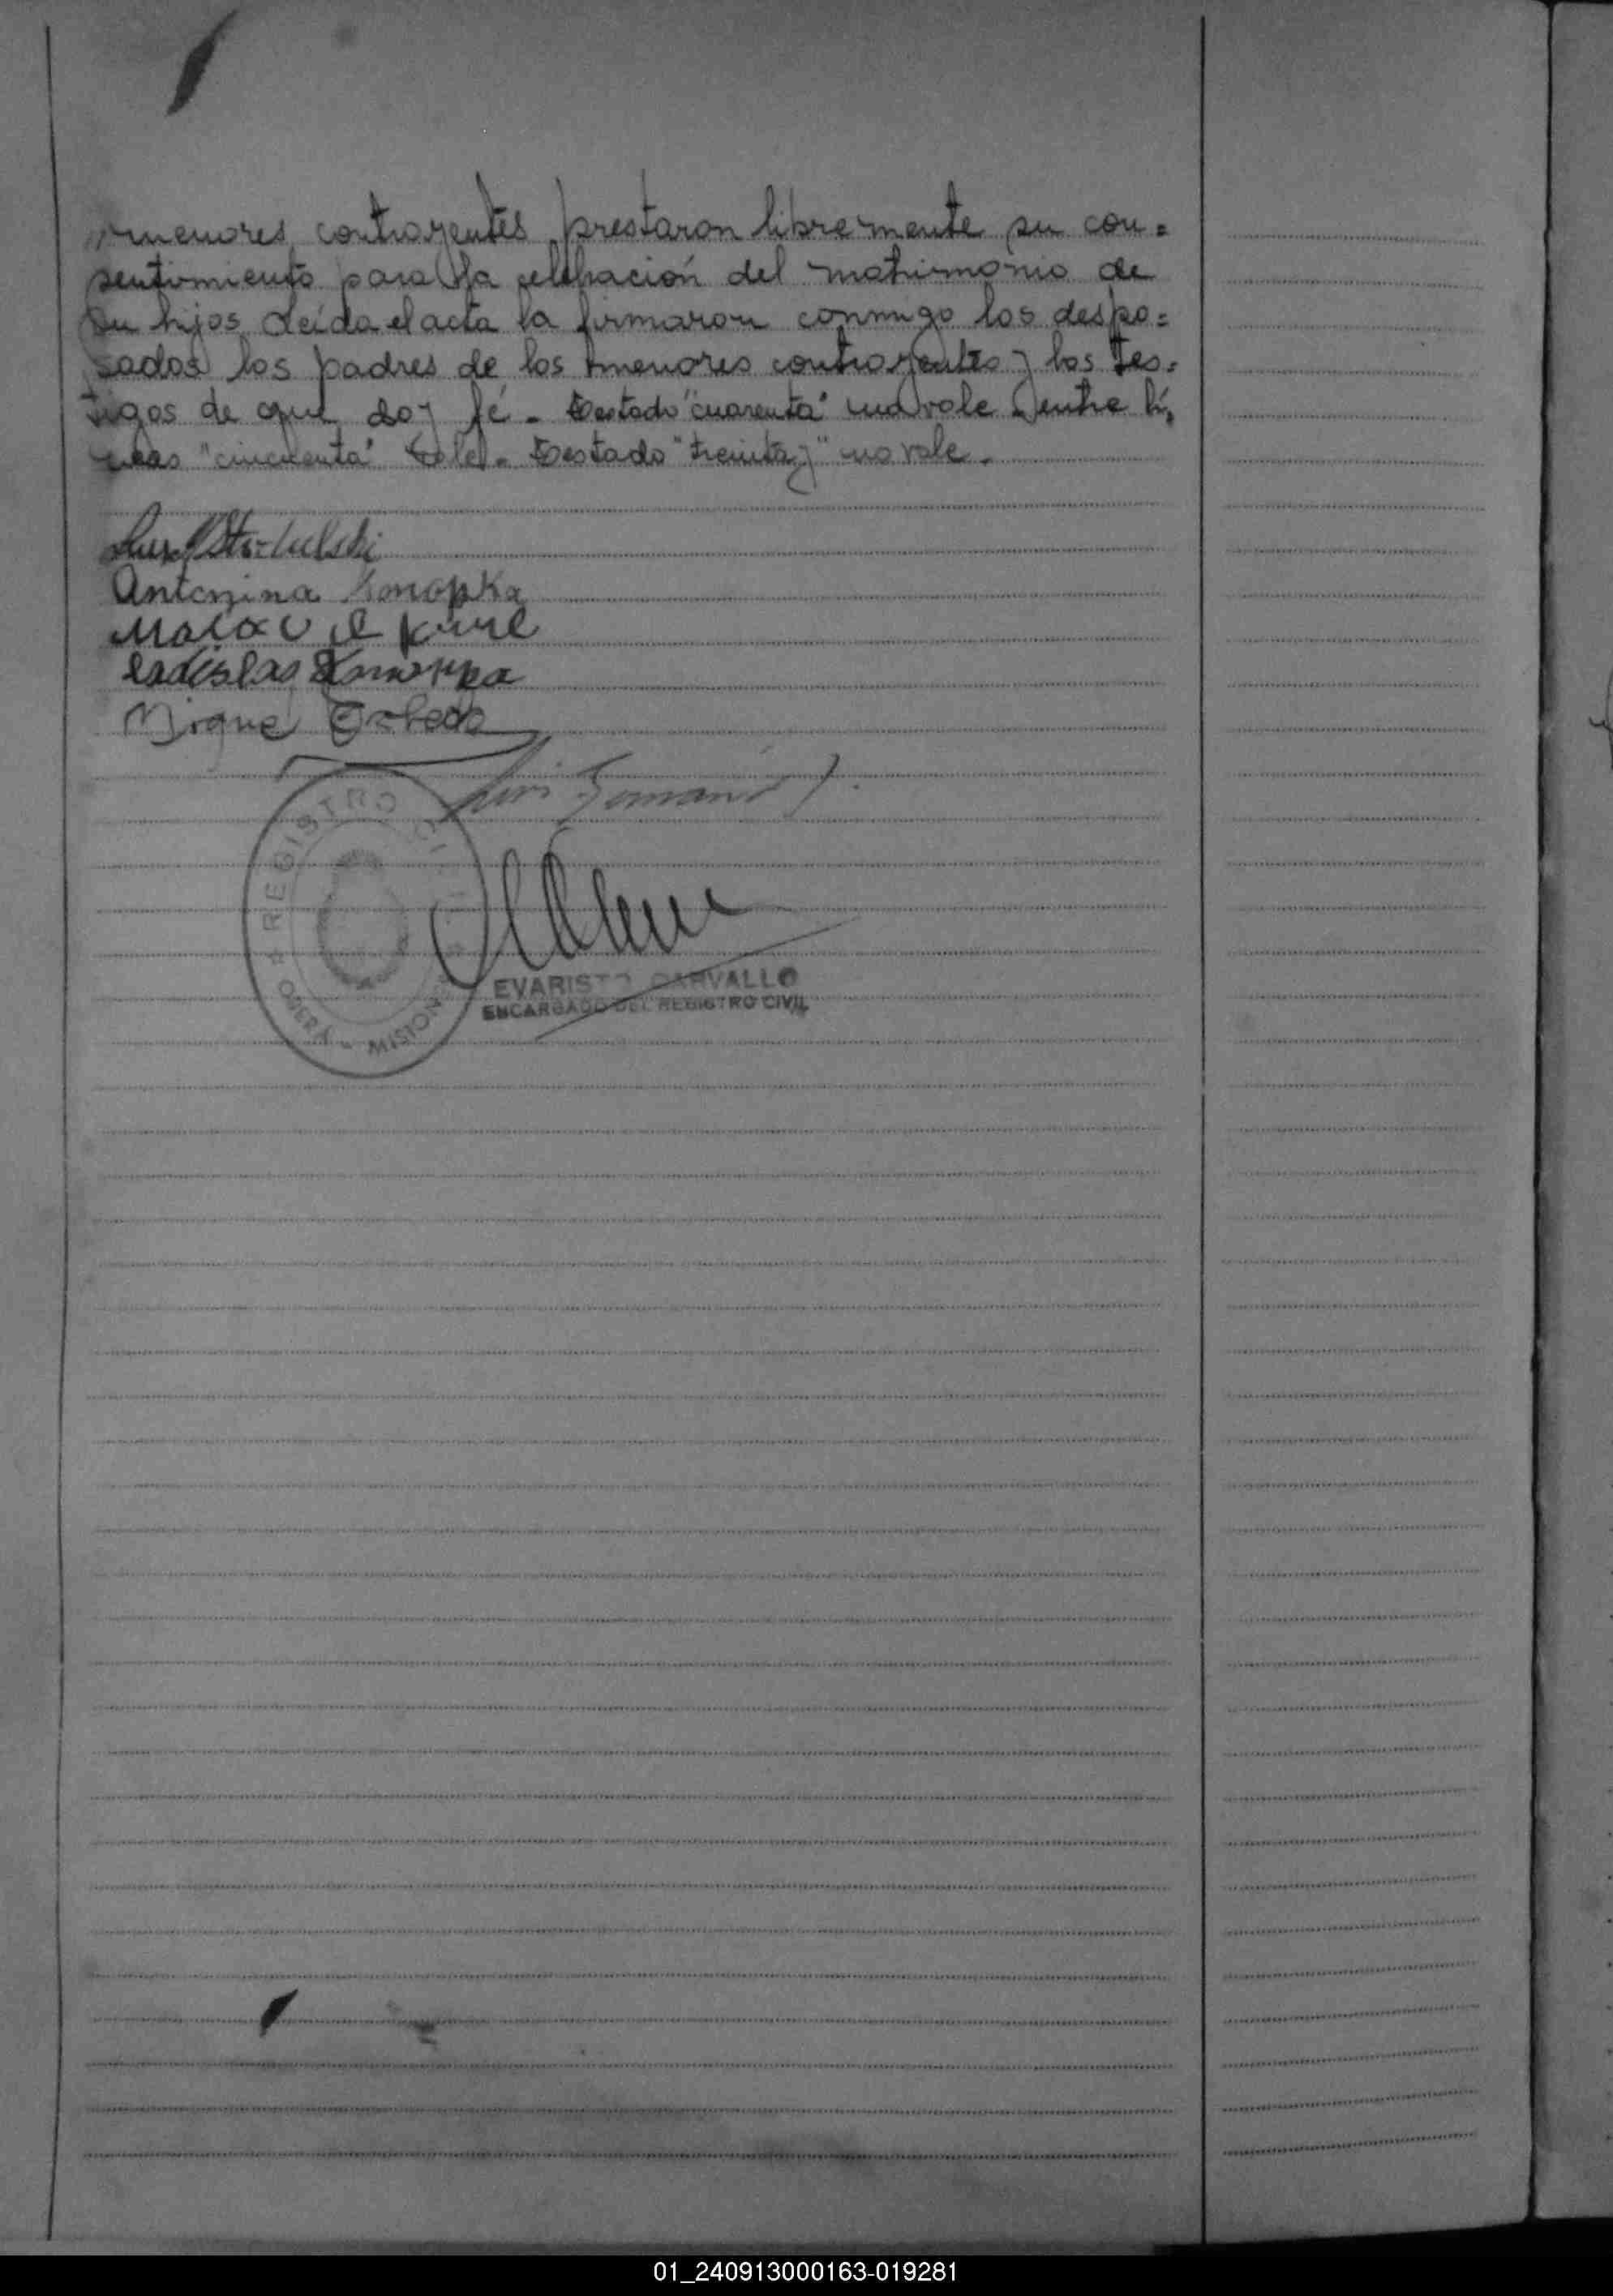 menores contrayentes prestaron libremente su con=
sentimiento para la celebración del matrimonio de
su hijos Leída el acta la firmaron conmigo los despo=
sados los padres de los menores contrayentes y los tes=
tigos de que doy fé. Testado "cuarenta" no vale entre lí,
neas "cincuenta" Vale. Testado "treinta y" no vale.
Antonina Konopka
ladislao Konopka
REGISTRO CIVIL
OBERÁ - MISIONES
EVARISTO CARVALLO
ENCARGADO DEL REGISTRO CIVIL
01_240913000163-019281